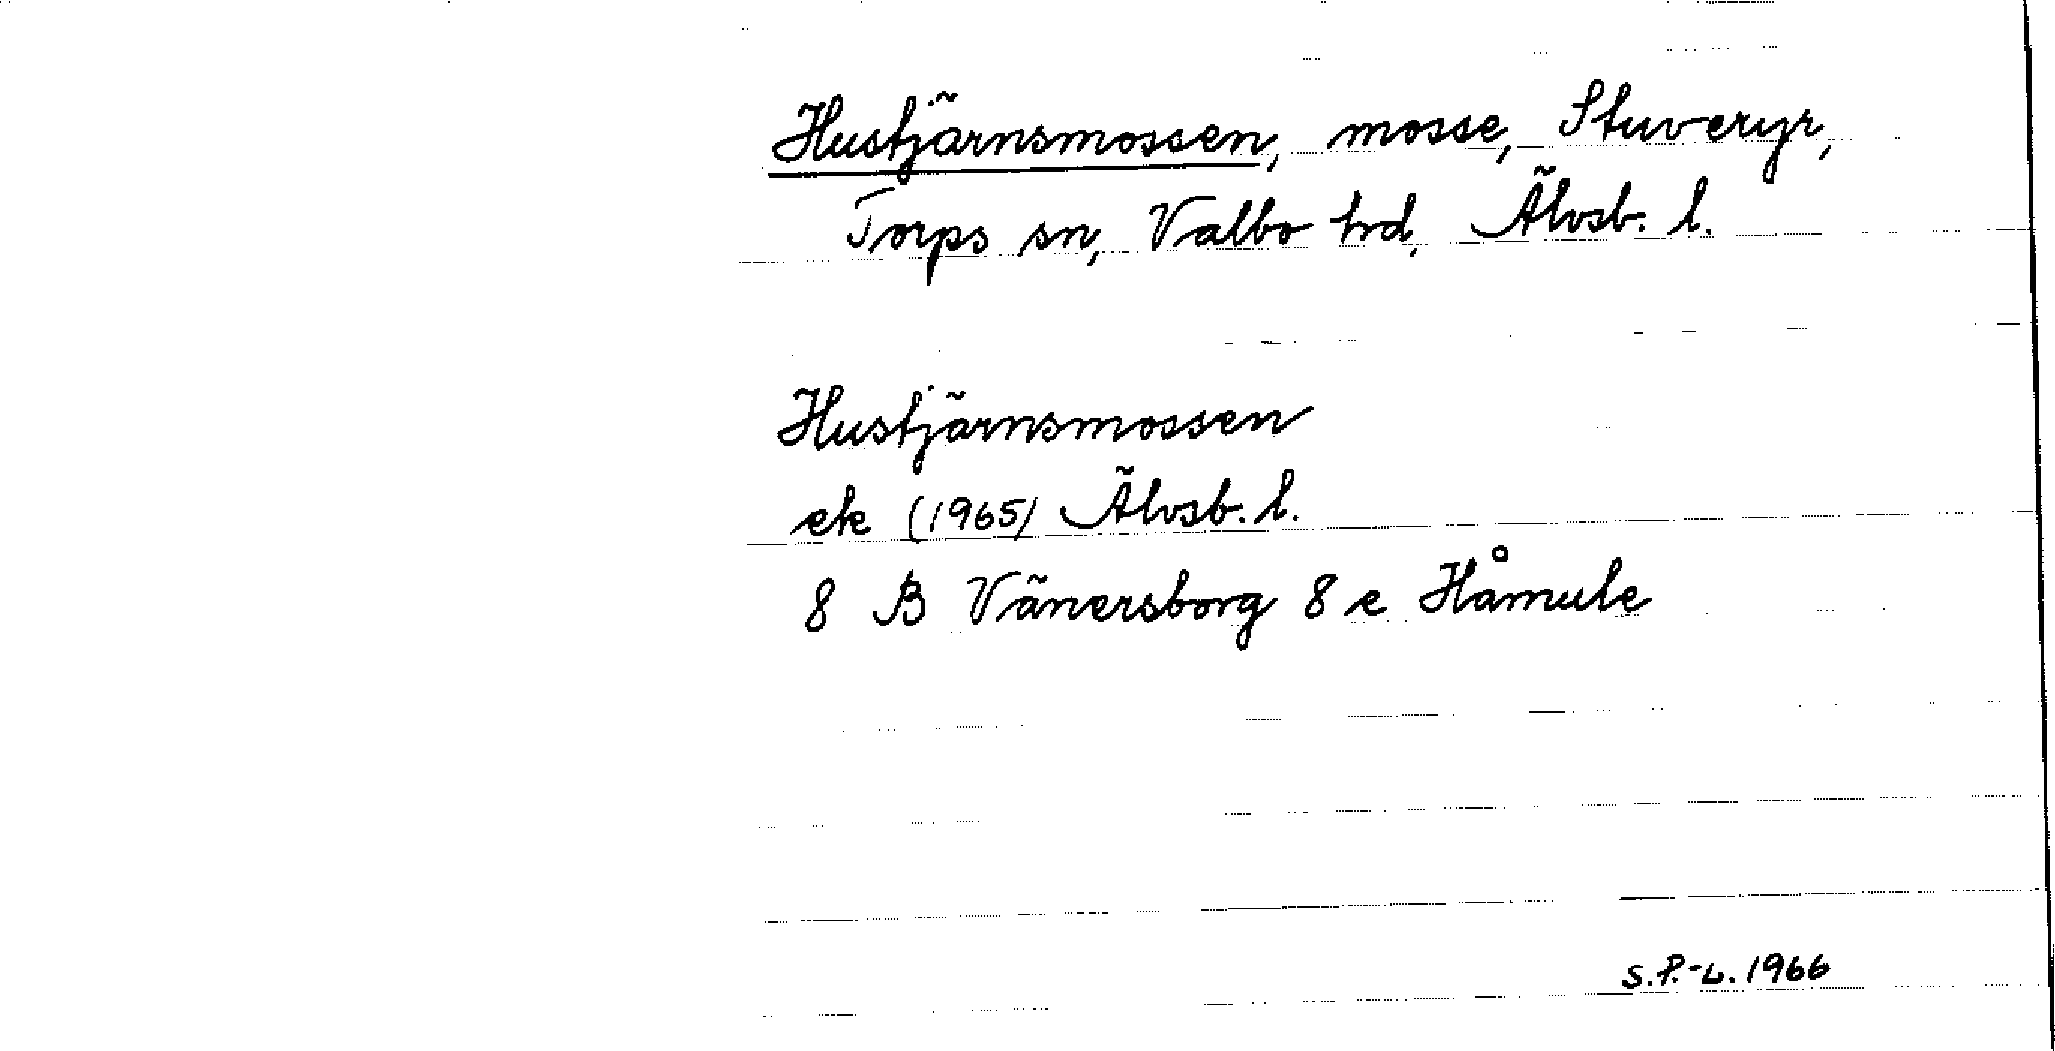 Hustjärnsmossen, mosse, Stuveryr,
Torps sn, Valbo hd, Älvsb. l.
Hustjärnsmossen
ek (1965) Älvsb. l.
8 B Vänersborg 8 e Håmule
S.P.-L. 1966